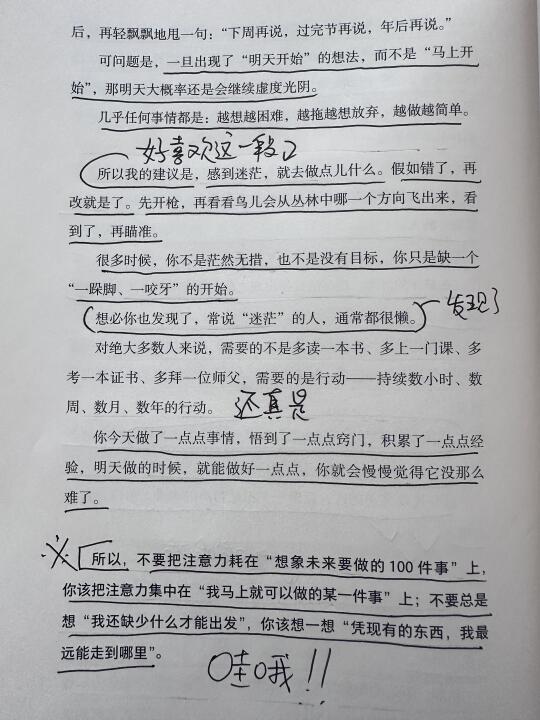 后，再轻飘飘地甩一句：“下周再说，过完节再说，年后再说。”
可问题是，一旦出现了“明天开始”的想法，而不是“马上开
始”，那明天大概率还是会继续虚度光阴。
几乎任何事情都是：越想越困难，越拖越想放弃，越做越简单。
好喜欢这一段
所以我的建议是，感到迷茫，就去做点儿什么。假如错了，再
改就是了。先开枪，再看看鸟儿会从丛林中哪一个方向飞出来，看
到了，再瞄准。
很多时候，你不是茫然无措，也不是没有目标，你只是缺一个
“一跺脚、一咬牙”的开始。
想必你也发现了，常说“迷茫”的人，通常都很懒。
发现了
对绝大多数人来说，需要的不是多读一本书、多上一门课、多
考一本证书、多拜一位师父，需要的是行动——持续数小时、数
周、数月、数年的行动。 还真是
你今天做了一点点事情，悟到了一点点窍门，积累了一点点经
验，明天做的时候，就能做好一点点，你就会慢慢觉得它没那么
难了。
所以，不要把注意力耗在“想象未来要做的 100 件事”上，
你该把注意力集中在“我马上就可以做的某一件事”上；不要总是
想“我还缺少什么才能出发”，你该想一想“凭现有的东西，我最
远能走到哪里”。
哇哦！！